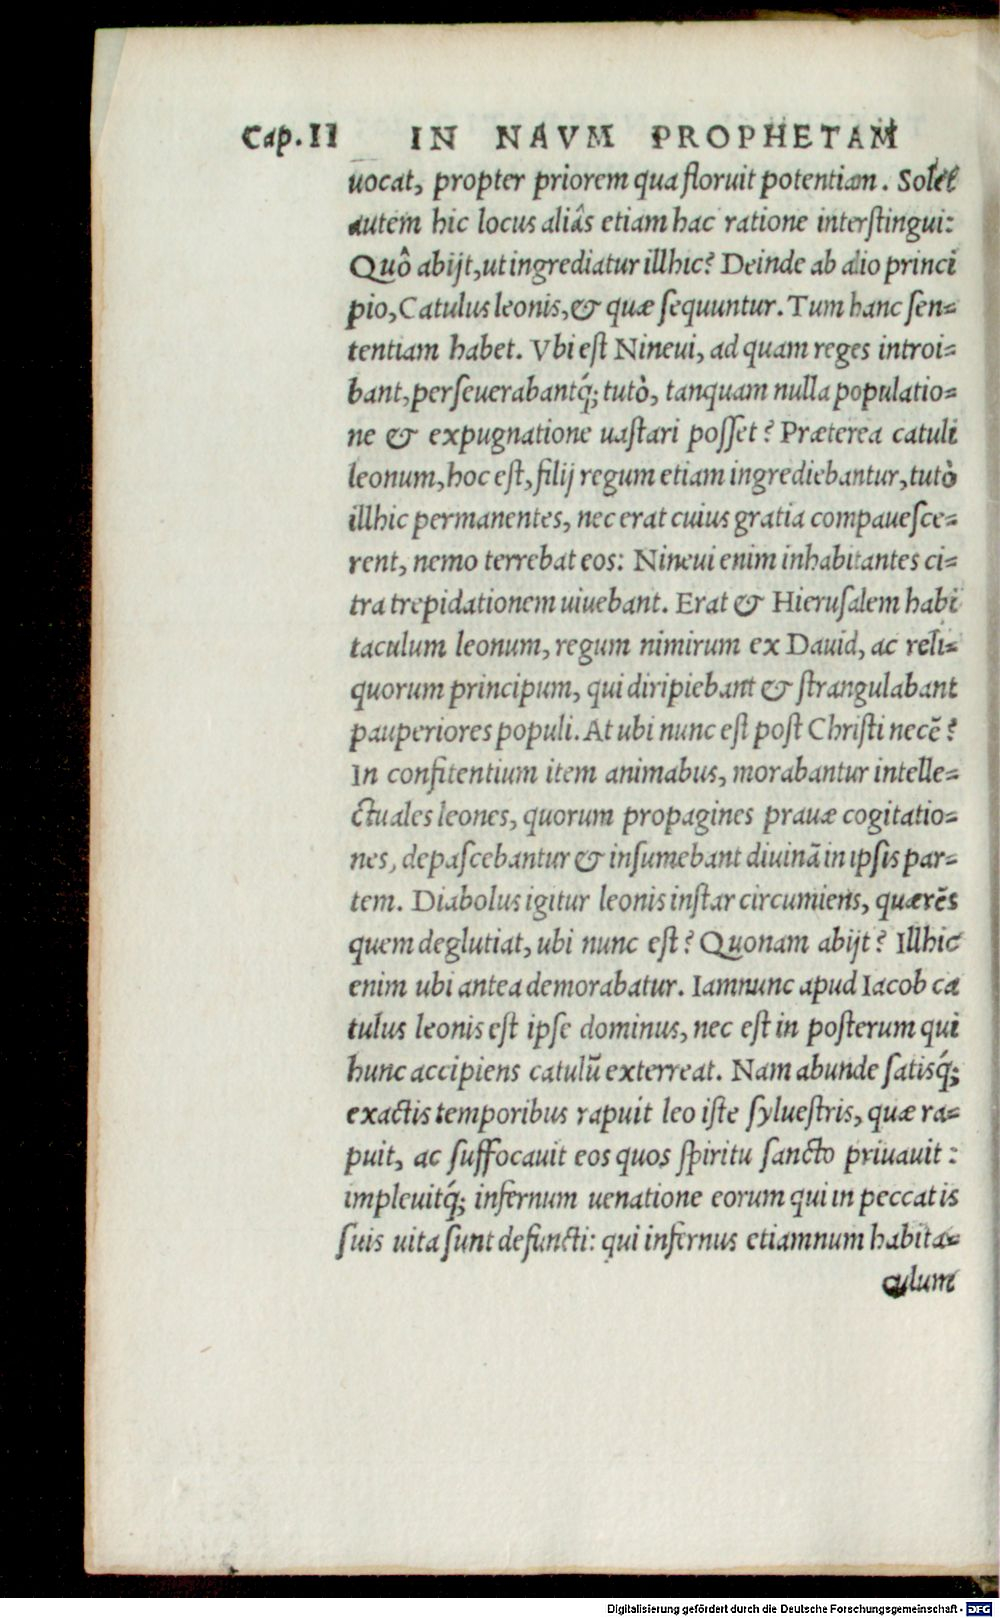 Cap. II IN NAVM PROPHETAM
uocat, propter priorem qua floruit potentiam. Solet
autem hic locus aliâs etiam hac ratione interſtingui:
Quô abijt, ut ingrediatur illhic? Deinde ab alio princi
pio, Catulus leonis, & quæ ſequuntur. Tum hanc ſen=
tentiam habet. Vbi eſt Nineui, ad quam reges introi=
bant, perſeuerabantq́; tutò, tanquam nulla populatio=
ne & expugnatione uaſtari poſſet? Præterea catuli
leonum, hoc eſt, filij regum etiam ingrediebantur, tutò
illhic permanentes, nec erat cuius gratia compaueſce=
rent, nemo terrebat eos: Nineui enim inhabitantes ci=
tra trepidationem uiuebant. Erat & Hieruſalem habi
taculum leonum, regum nimirum ex Dauid, ac reli=
quorum principum, qui diripiebant & ſtrangulabant
pauperiores populi. At ubi nunc eſt poſt Chriſti necē?
In confitentium item animabus, morabantur intelle=
ctuales leones, quorum propagines prauæ cogitatio=
nes, depaſcebantur & inſumebant diuinā in ipſis par=
tem. Diabolus igitur leonis inſtar circumiens, quærēs
quem deglutiat, ubi nunc eſt? Quonam abijt? Illhic
enim ubi antea demorabatur. Iamnunc apud Iacob ca
tulus leonis eſt ipſe dominus, nec eſt in poſterum qui
hunc accipiens catulū exterreat. Nam abunde ſatisq́;
exactis temporibus rapuit leo iſte ſylueſtris, quæ ra=
puit, ac ſuffocauit eos quos ſpiritu ſancto priuauit:
impleuitq́; infernum uenatione eorum qui in peccatis
ſuis uita ſunt defuncti: qui infernus etiamnum habita=
culum
Digitalisierung gefördert durch die Deutsche Forschungsgemeinschaft - DFG